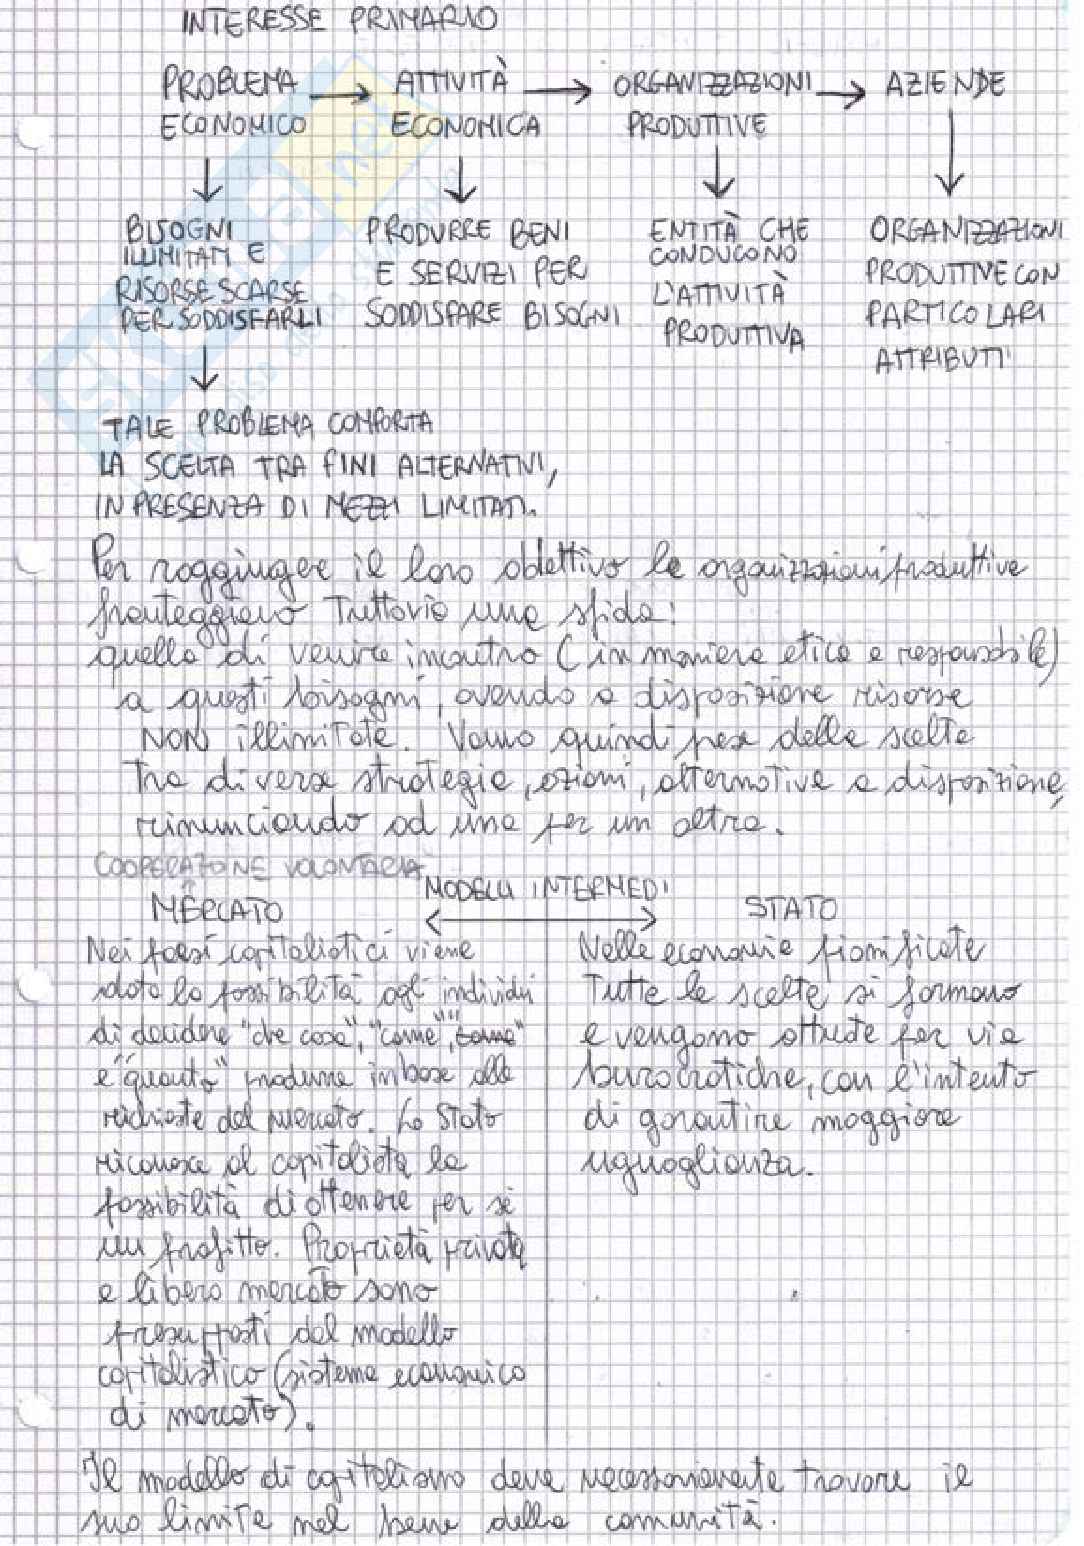 INTERESSE PRIMARIO
PROBLEMA ECONOMICO → ATTIVITÀ ECONOMICA → ORGANIZZAZIONI PRODUTTIVE → AZIENDE
BISOGNI
ILLIMITATI E
RISORSE SCARSE
PER SODDISFARLI
PRODURRE BENI
E SERVIZI PER
SODDISFARE BISOGNI
ENTITÀ CHE
CONDUCONO
L'ATTIVITÀ
PRODUTTIVA
ORGANIZZAZIONI
PRODUTTIVE CON
PARTICOLARI
ATTRIBUTI
TALE PROBLEMA COMPORTA
LA SCELTA TRA FINI ALTERNATIVI,
IN PRESENZA DI MEZZI LIMITATI.
Per raggiungere il loro obiettivo le organizzazioni produttive
fronteggiano tuttavia una sfida:
quella di venire incontro (in maniera etica e responsabile)
a questi bisogni, avendo a disposizione risorse
NON illimitate. Vanno quindi prese delle scelte
tra diverse strategie, azioni, alternative a disposizione,
rinunciando ad una per un altra.
COOPERAZIONE VOLONTARIA
MERCATO
MODELLI INTERMEDI
STATO
Nei paesi capitalistici viene
data la possibilità agli individui
di decidere "che cosa", "come", "come"
e "quanto" produrre in base alle
richieste del mercato. Lo Stato
riconosce al capitalista la
possibilità di ottenere per sé
un profitto. Proprietà privata
e libero mercato sono
presupposti del modello
capitalistico (sistema economico
di mercato).
Nelle economie pianificate
tutte le scelte si formano
e vengono attuate per vie
burocratiche, con l'intento
di garantire maggiore
uguaglianza.
Il modello di capitalismo deve necessariamente trovare il
suo limite nel bene della comunità.